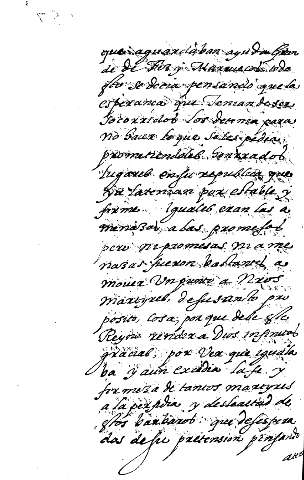 que aguardaban ayuda gran
de de Fez y Marruecos todo
esto se decia pensando que la
esperança que tenian de ser
socorridos los detenia para
no hacer lo que se les pedia
prometiendoles honrados
lugares en su republica que
la tenian por estable y
firme. Iguales eran las a
menazas, a las promesas
pero ni promesas ni ame
nazas fueron bastantes a
mover un punto a Nros
martyres, de su santo pro
posito, cosa, por que debe este
Reyno rendir a Dios infinitas
gracias, por ver que iguala
ba y aun excedia la fe y
firmeza de tantos martyres
a la perfidia y deslealtad de
estos barbaros que desespera
dos de su pretension pensando